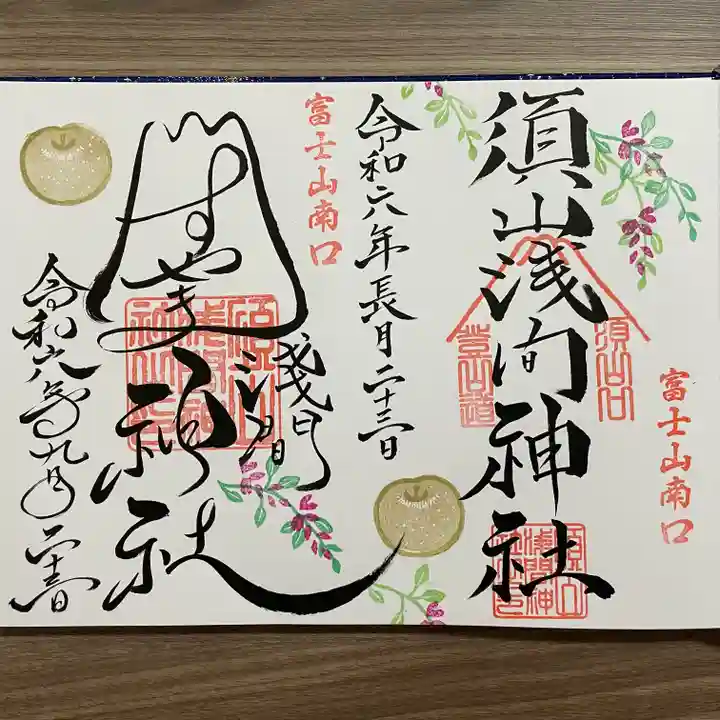 富士山南口
須山浅间神社
須山口
登山道
須山浅間神社
令和六年長月二十三日
富士山南口
すやま
浅間
神社
令和六年九月二十三日